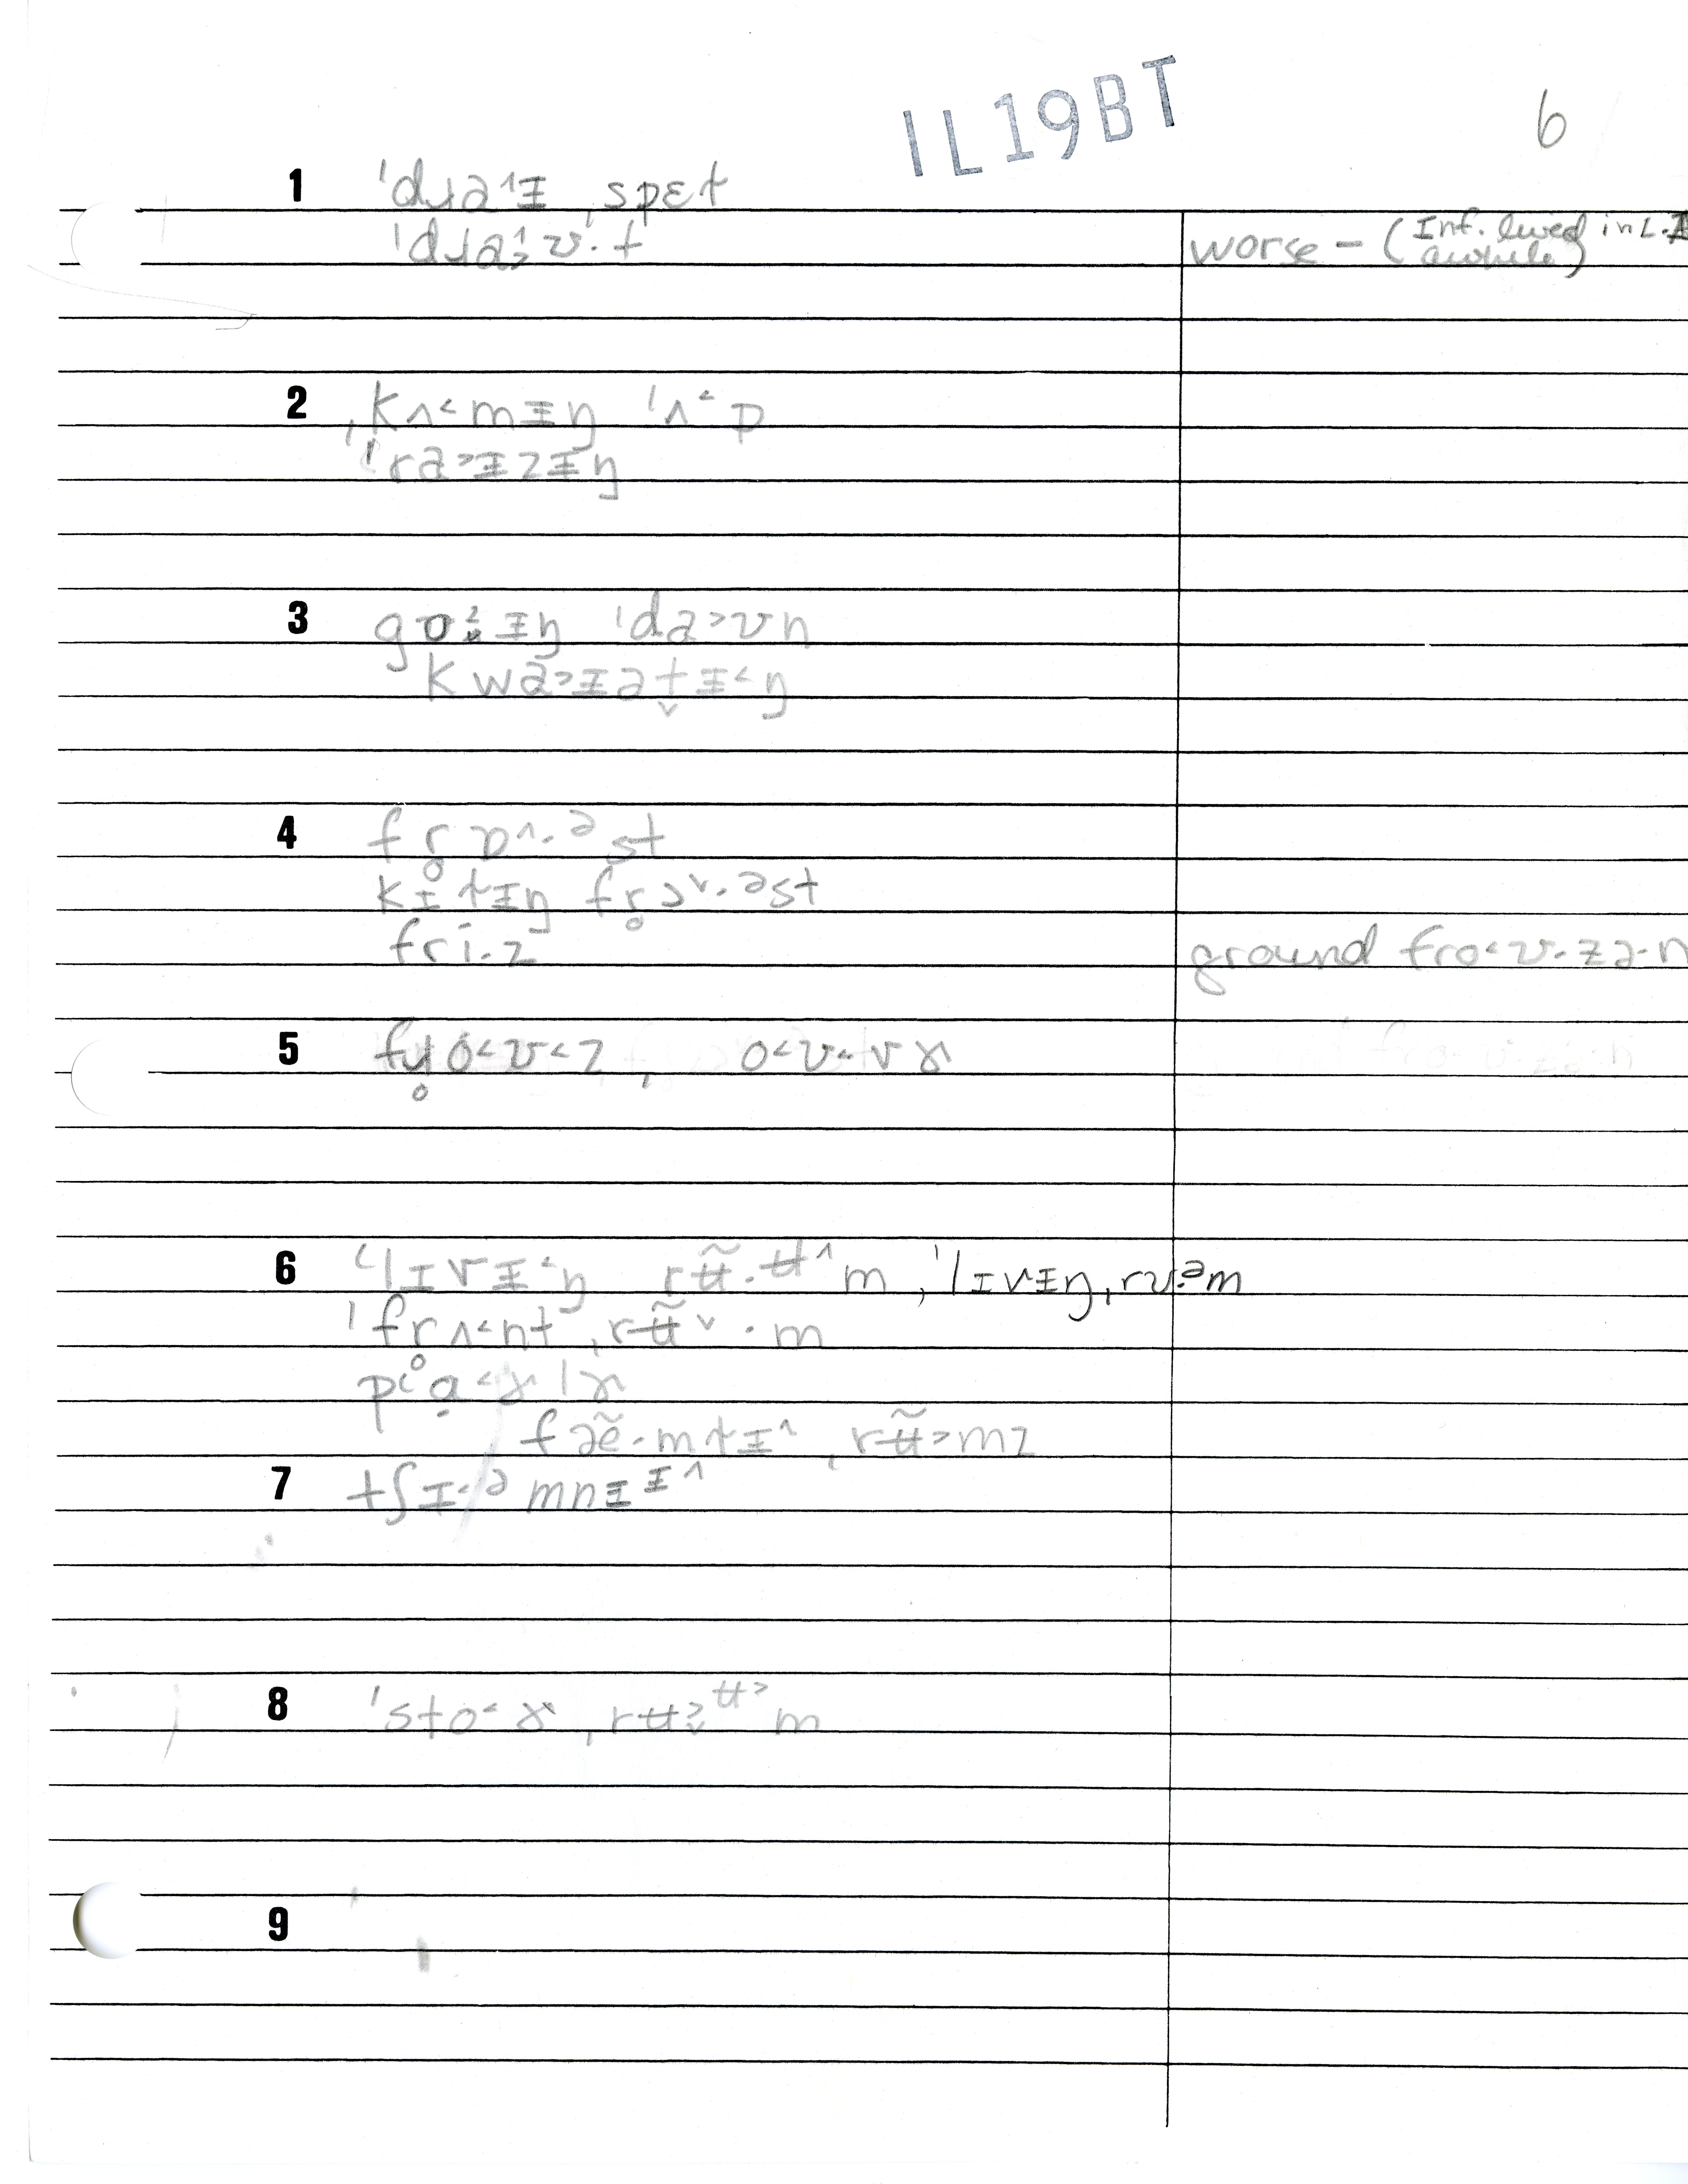 IL19BT
6
1 ˈdɹa^ɪ ˌspɛt
ˈdɹa^>ʊ·t
worse – (Inf. lived in L.A. awhile)
2 ˌkʌ<mɪŋ ˈʌ<p
ˈra>ɪzɪŋ
3 ɪŋ ˈda>ʊn
kwa>ɪətɪ<ŋ
4 fr̥ɒ^·ᵊst
fr̥ɔˇ·ᵊst
fri·z
ground fro<ʊ·zə·n
5 fɹ̥o<ʊ<z, o<ʊ<vɚ
6 ˈlɪvɪ<ŋ rʉ̃·ʉ^m, ˈlɪvɪŋˌrʊ·ᵊm
ˈfrʌ<ntˌrʉ̃ˇ·m
ˌrʉ̃>mz
7 tʃɪ<ᵊmnɪɪ^
8 ˈsto<ɚˌrʉ>ʉ>m
9